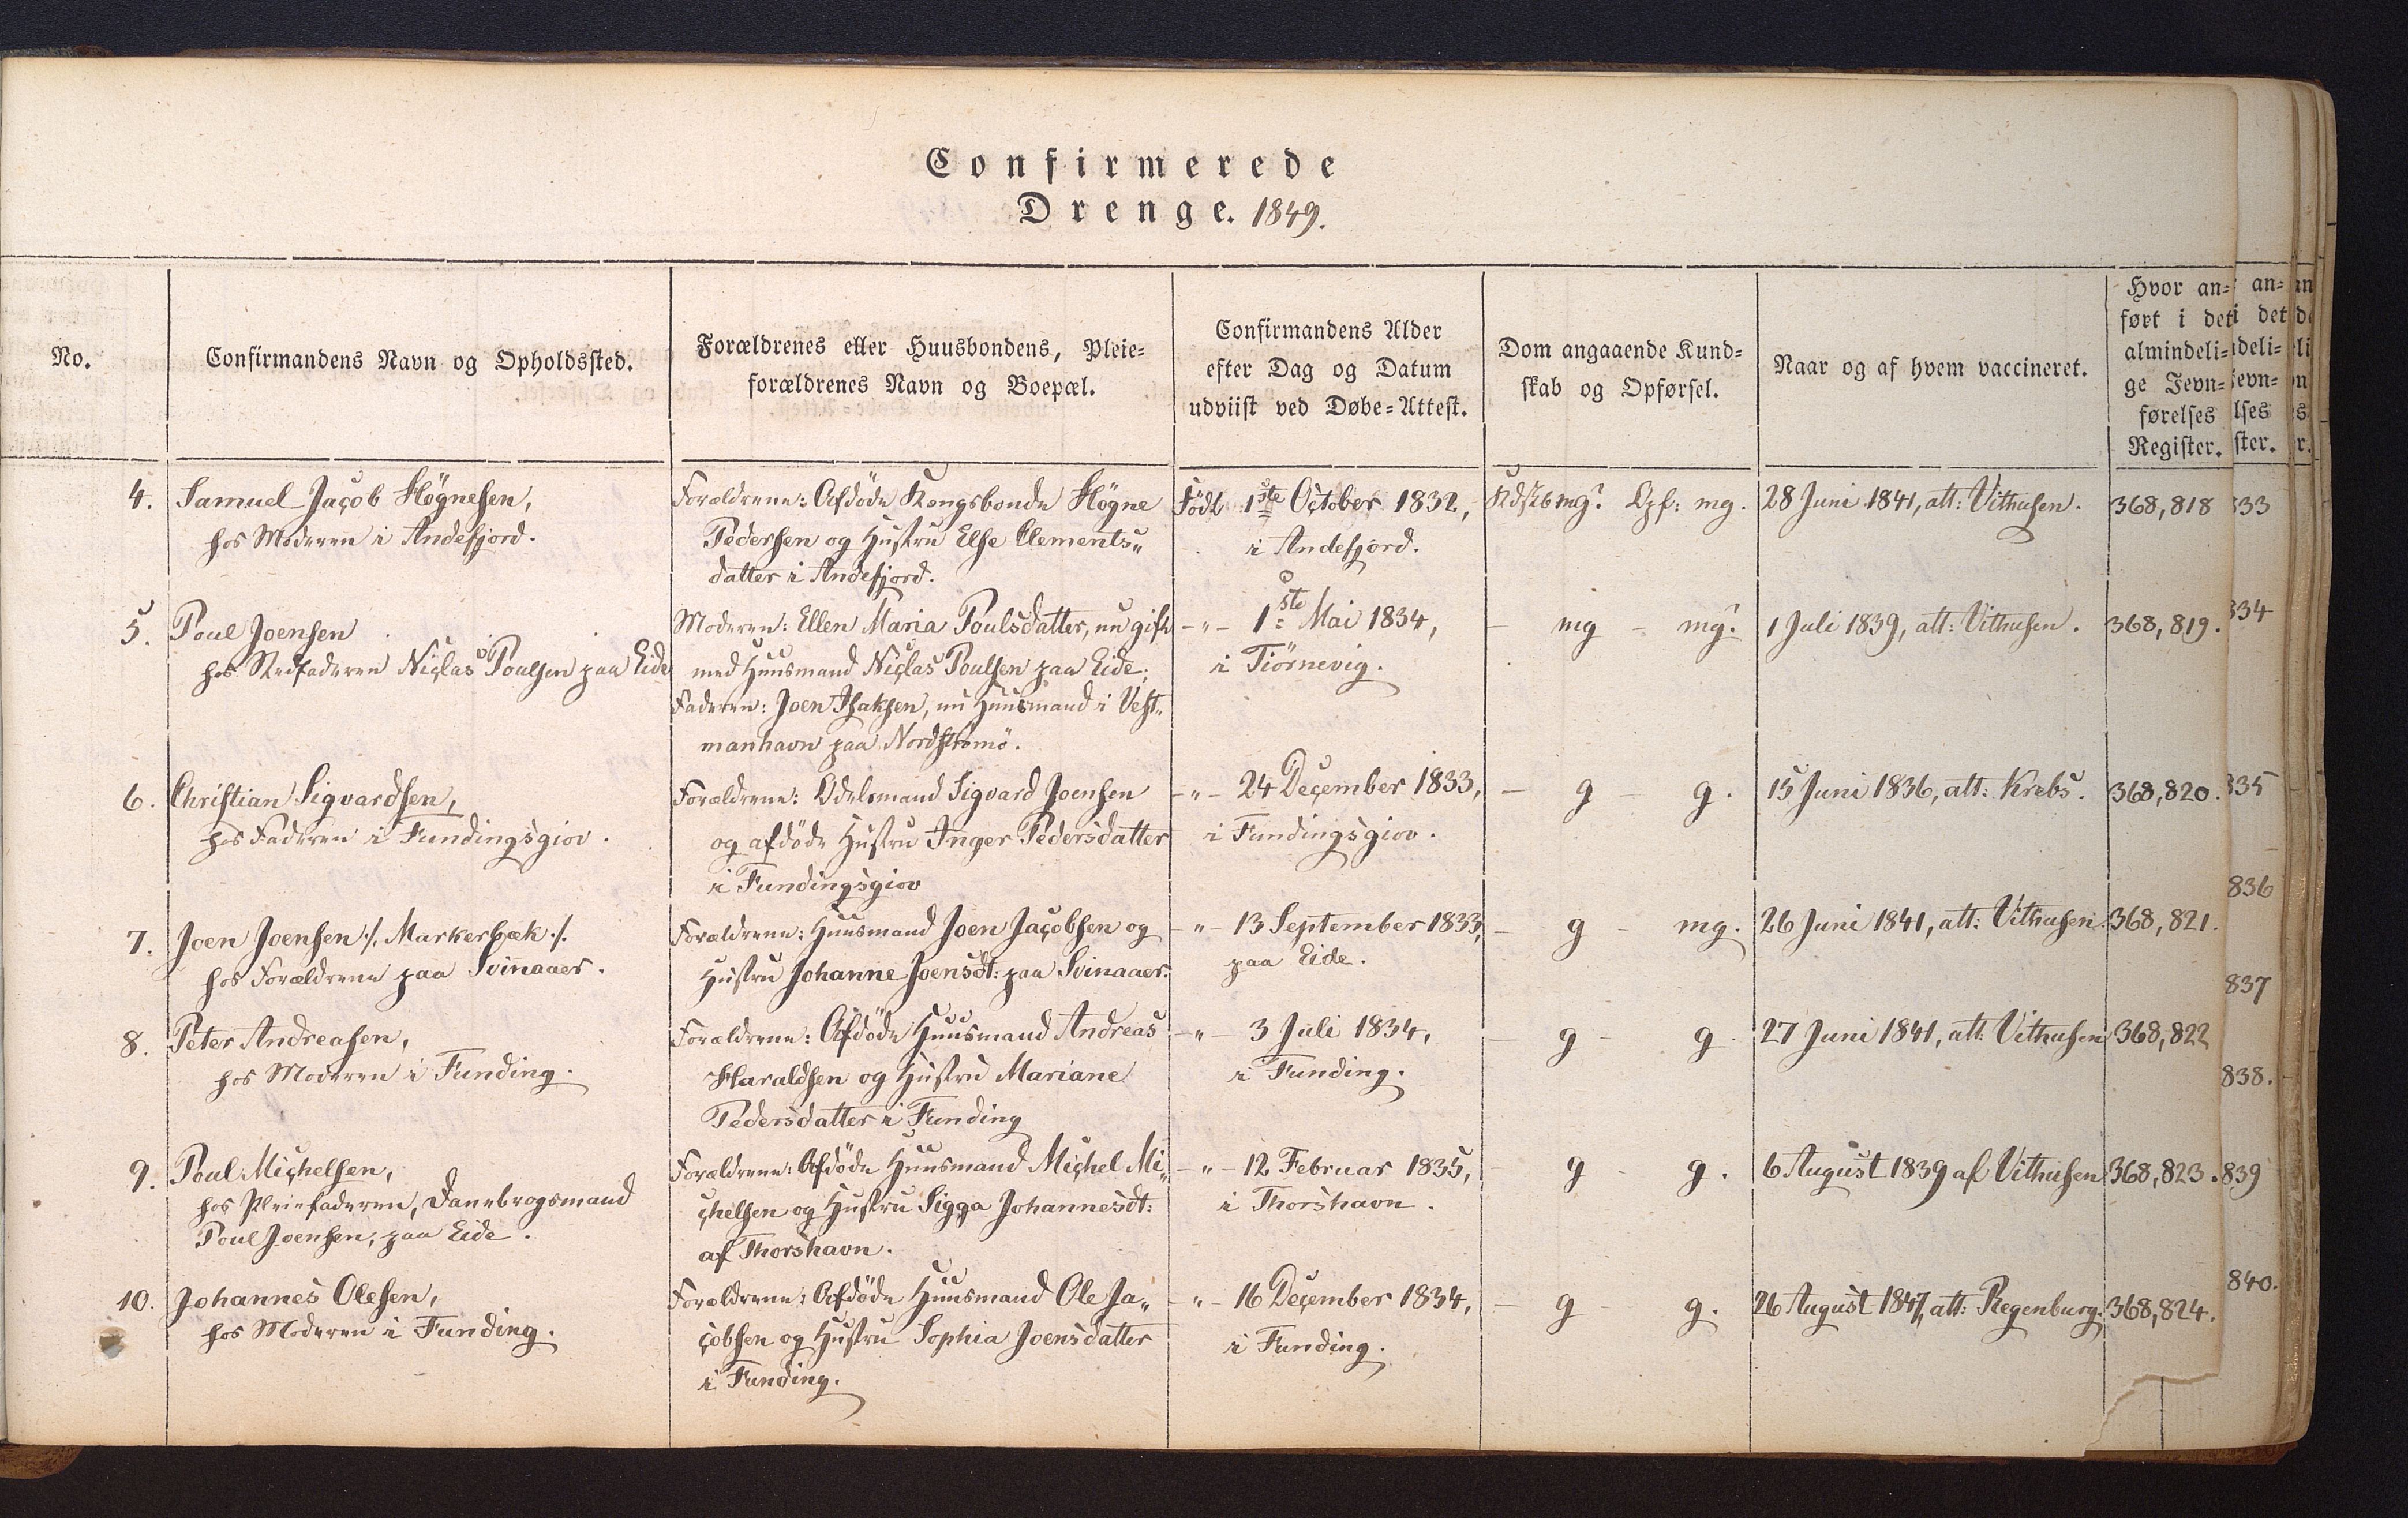 Confirmerede
Drenge. 1849.
No.
Confirmandens Navn og Opholdssted.
Forældrenes eller Huusbondens, Pleie=
forældrenes Navn og Boepæl.
Confirmandens Alder
efter Dag og Datum
udviist ved Døbe=Attest.
Dom angaaende Kund=
skab og Opførsel.
Naar og af hvem vaccineret.
Hvor an=
ført i det
almindeli=
ge Jevn=
førelses
Register.
4.
Samuel Jacob Högnesen,
hos Moderen i Andefjord.
Forældrene: Afdöde Kongsbonde Högne
Pedersen og Hustru Else Clements„
datter i Andefjord.
Födt 1ste October 1832,
i Andefjord.
Kdskb mg? Opf: mg.
28 Juni 1841, att: Vithusen.
368, 818
5.
Poul Joensen
hos Stedfaderen Niclas Poulsen paa Eide
Moderen: Ellen Maria Poulsdatter, nu gift
med Huusmand Niclas Poulsen paa Eide;
Faderen: Joen Isaksen, nu Huusmand i Vest„
manhavn paa Nordströmö.
-„- 1ste Mai 1834,
i Tiörnevig.
- mg - mg?
1 Juli 1839, att: Vithusen.
368, 819.
6.
Christian Sigvardsen,
hos Faderen i Fundingsgiov.
Forældrene: Odelsmand Sigvard Joensen
og afdöde Hustru Inger Pedersdatter
i Fundingsgiov
-„- 24 December 1833,
i Fundingsgiov.
- g - g.
15 Juni 1836, att: Krebs.
368, 820.
7.
Joen Joensen ./. Markerbæk ./.
hos Forældrene paa Svinaaer.
Forældrene: Huusmand Joen Jacobsen og
Hustru Johanne Joensdt: paa Svinaaer.
-„- 13 September 1833,
paa Eide.
- g - mg.
26 Juni 1841, att: Vithusen.
368, 821.
8.
Peter Andreasen,
hos Moderen i Funding.
Forældrene: Afdöde Huusmand Andreas
Haraldsen og Hustru Mariane
Pedersdatter i Funding
-„- 3 Juli 1834,
i Funding.
- g - g.
27 Juni 1841, att: Vithusen
368, 822
9.
Poul Michelsen,
hos Pleiefaderen, Danebrogsmand
Poul Joensen, paa Eide.
Forældrene: Afdöde Huusmand Michel Mi„
chelsen og Hustru Sigga Johannesdt:
af Thorshavn.
-„- 12 Februar 1835,
i Thorshavn.
- g - g.
6 August 1839 af Vithusen
368, 823.
10.
Johannes Olesen,
hos Moderen i Funding.
Forældrene: Afdöde Huusmand Ole Ja„
cobsen og Hustru Sophia Joensdatter
i Funding.
-„- 16 December 1834,
i Funding.
- g - g.
26 August 1847, att: Regenburg.
368, 824.
an=
i det
deli=
evn=
lses
ster.
833
834
835
836
837
838.
839
840.